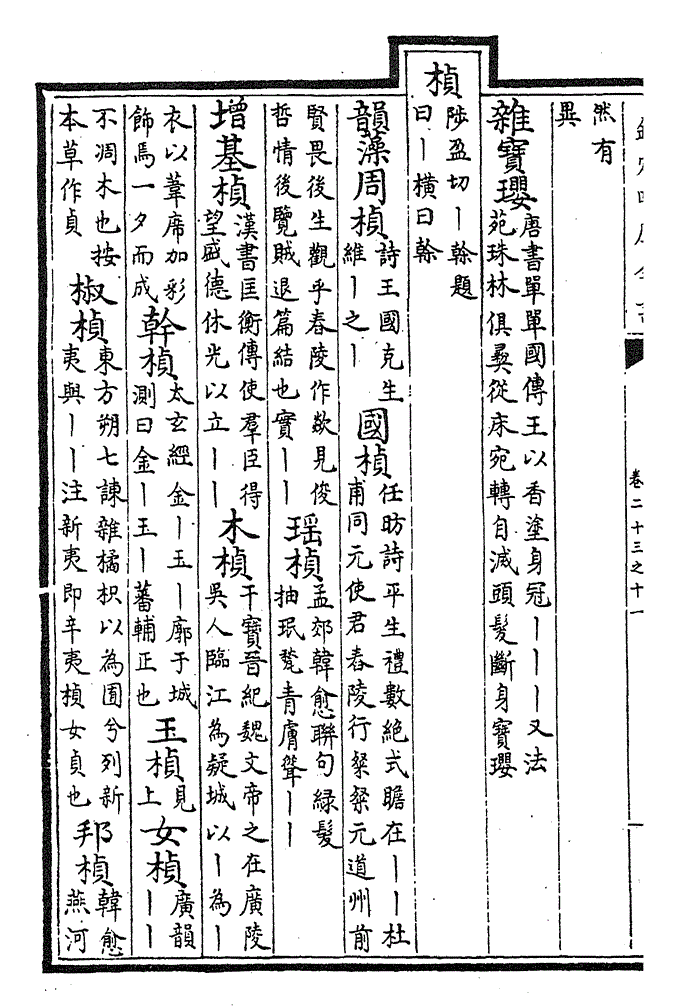 卷二十三之十一
然有
異
雜寶瓔
唐書單單國傳王以香塗身冠丨丨丨又法
苑珠林俱彛從床宛轉自滅頭髮斷身寶瓔
楨
陟盈切丨榦題
曰丨橫曰榦
韻藻周楨
詩王國克生
維丨之丨
國楨
任昉詩平生禮數絶式瞻在丨丨杜
甫同元使君舂陵行粲粲元道州前
賢畏後生觀乎舂陵作欻見俊
哲情後覽賊退篇結也實丨丨
瑶楨
孟郊韓愈聯句綠髮
抽珉甃青膚聳丨丨
增基楨
漢書匡衡傳使羣臣得
望盛德休光以立丨丨
木楨
干寶晉紀魏文帝之在廣陵
吳人臨江為疑城以丨為丨
衣以葦席加彩
飾焉一夕而成
幹楨
太玄經金丨玉丨廓于城
測曰金丨玉丨蕃輔正也
玉楨
見
上
女楨
廣韻
丨丨
不凋木也按
本草作貞
椒楨
東方朔七諫雜橘枳以為囿兮列新
夷與丨丨注新夷即辛夷楨女貞也
邦楨
韓愈
燕河